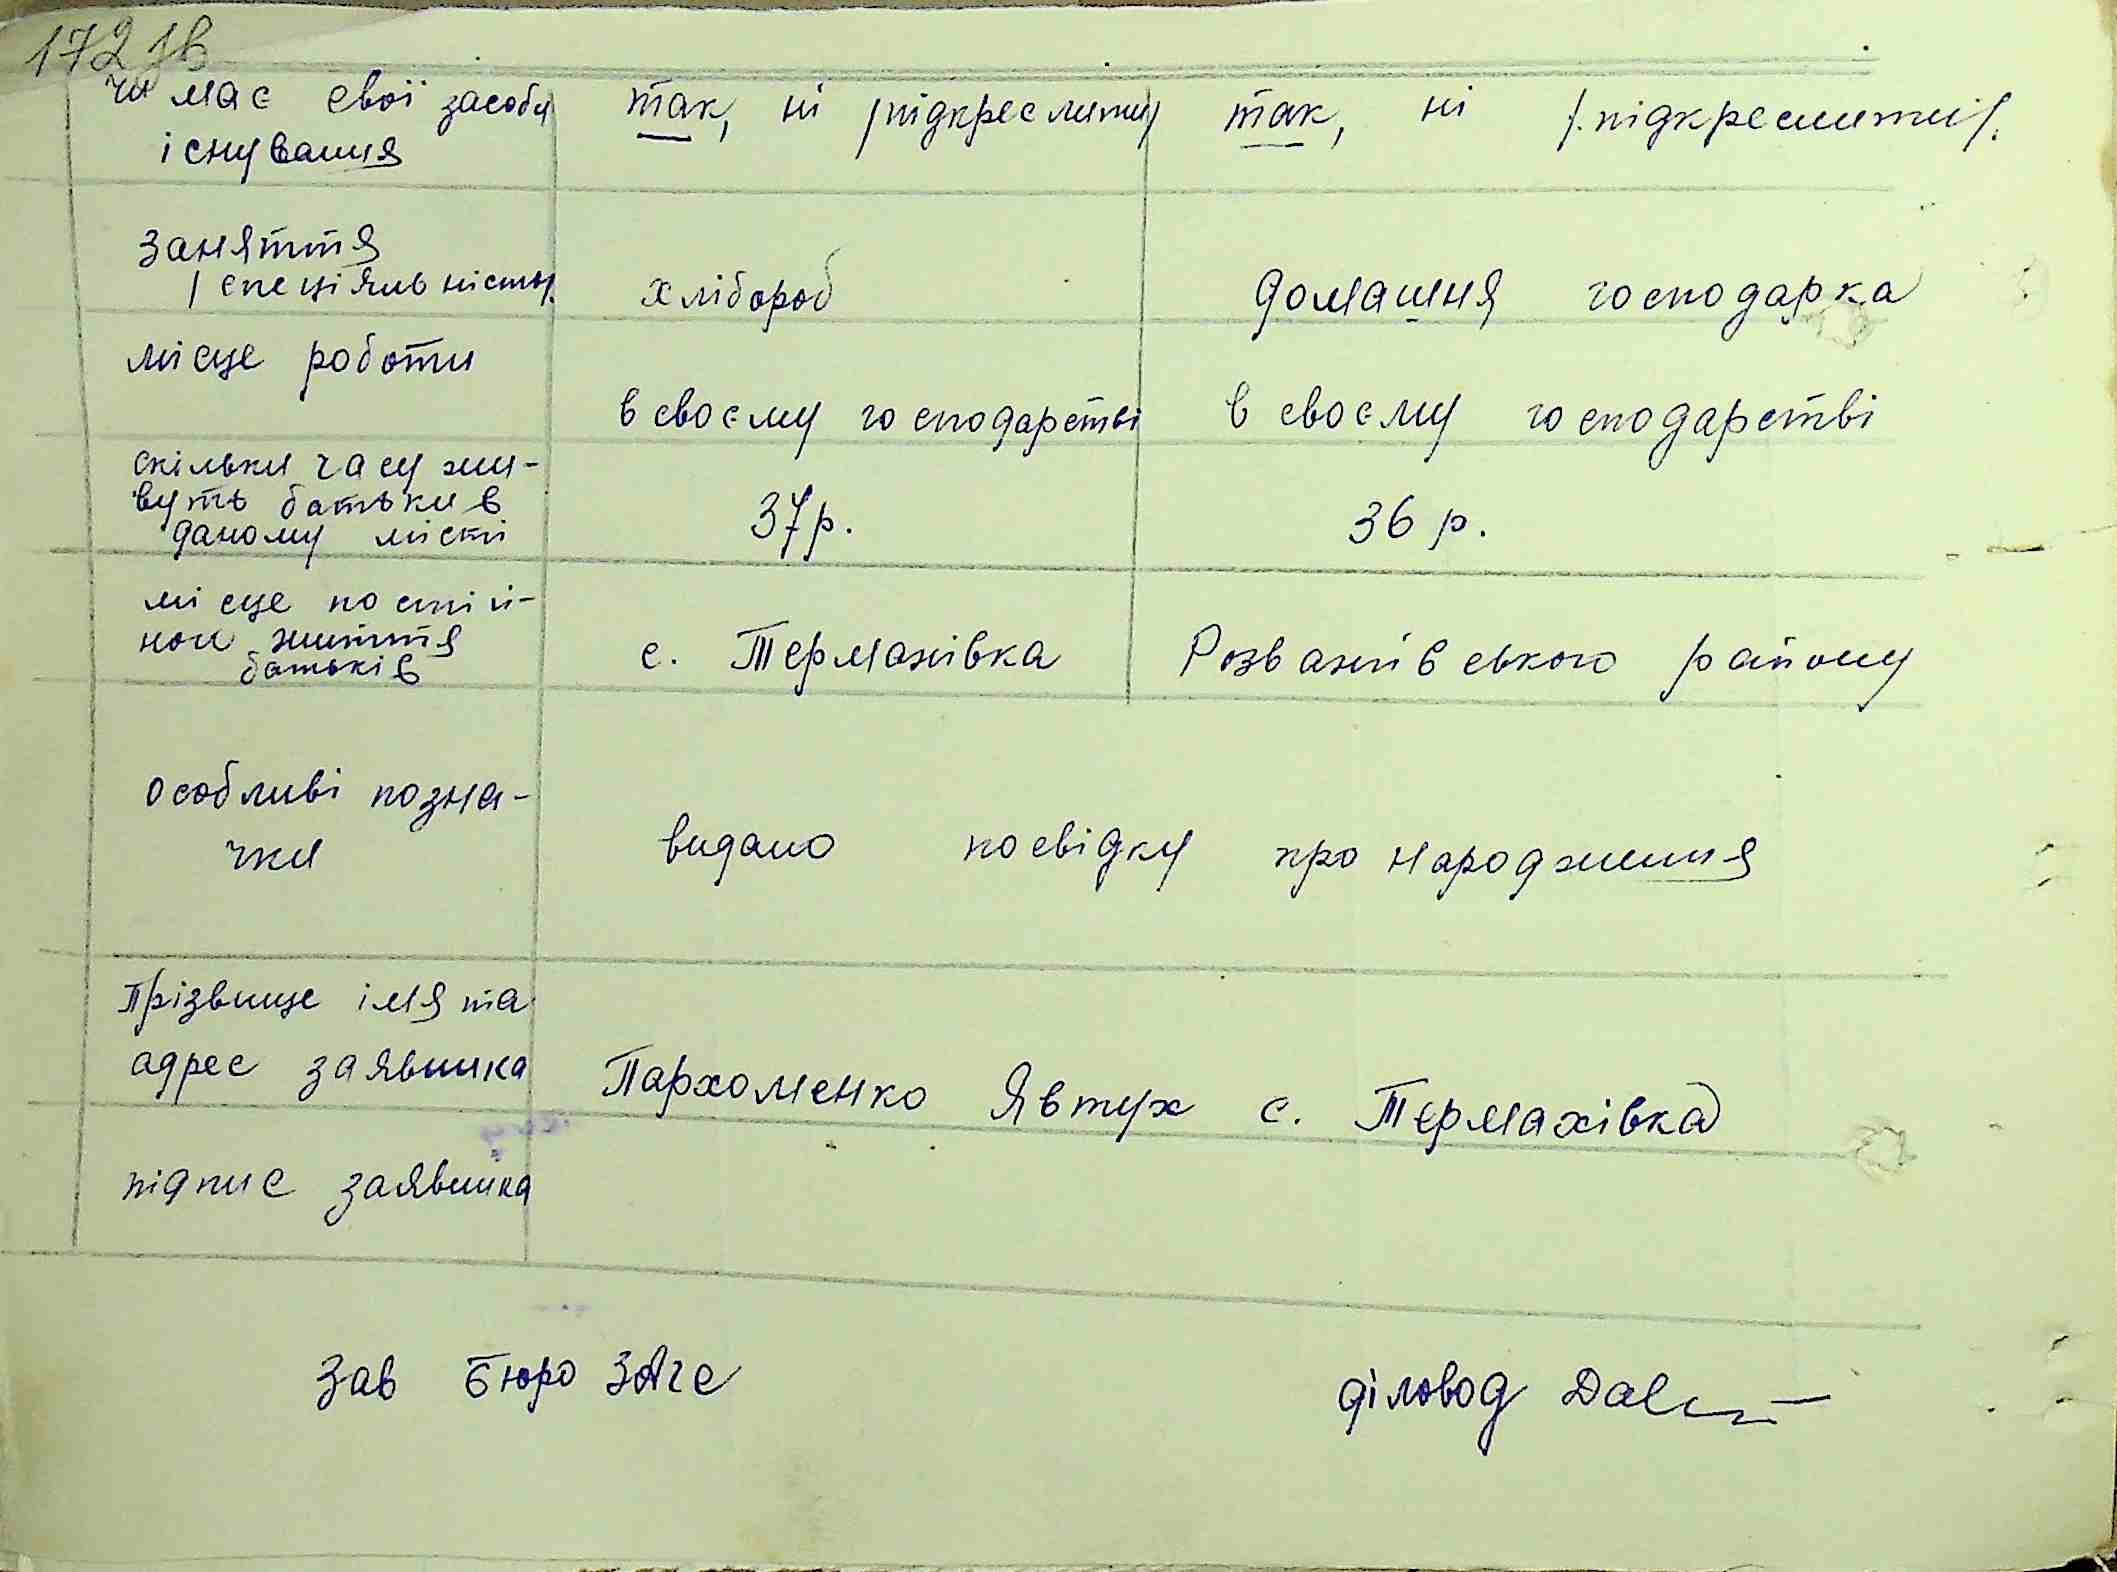 172 зв
чи має свої засоби так, ні /підкреслити/ так, ні /.підкреслити/.
існування
заняття
/спеціяльність/. хлібороб домашня господарка
місце роботи
в своєму господарстві в своєму господарстві
скільки часу жи-
вуть батьки в 37р. 36 р.
даному місті
місце постій-
ного життя с. Термахівка Розважівського району
батьків
особливі позна-
чки видано посвідку про народження
Прізвище імя та
адрес заявника Пархоменко Явтух с. Термахівка
підпис заявника
Зав Бюро ЗАГС діловод